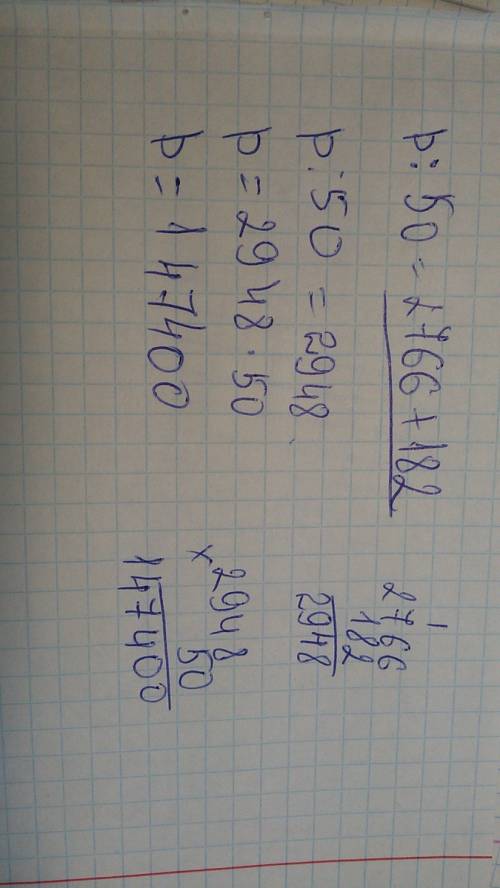 p : 50 = 2766 + 182
p : 50 = 2948
p = 2948 · 50
p = 147400
1
2766
182
2948
2948
x 50
147400